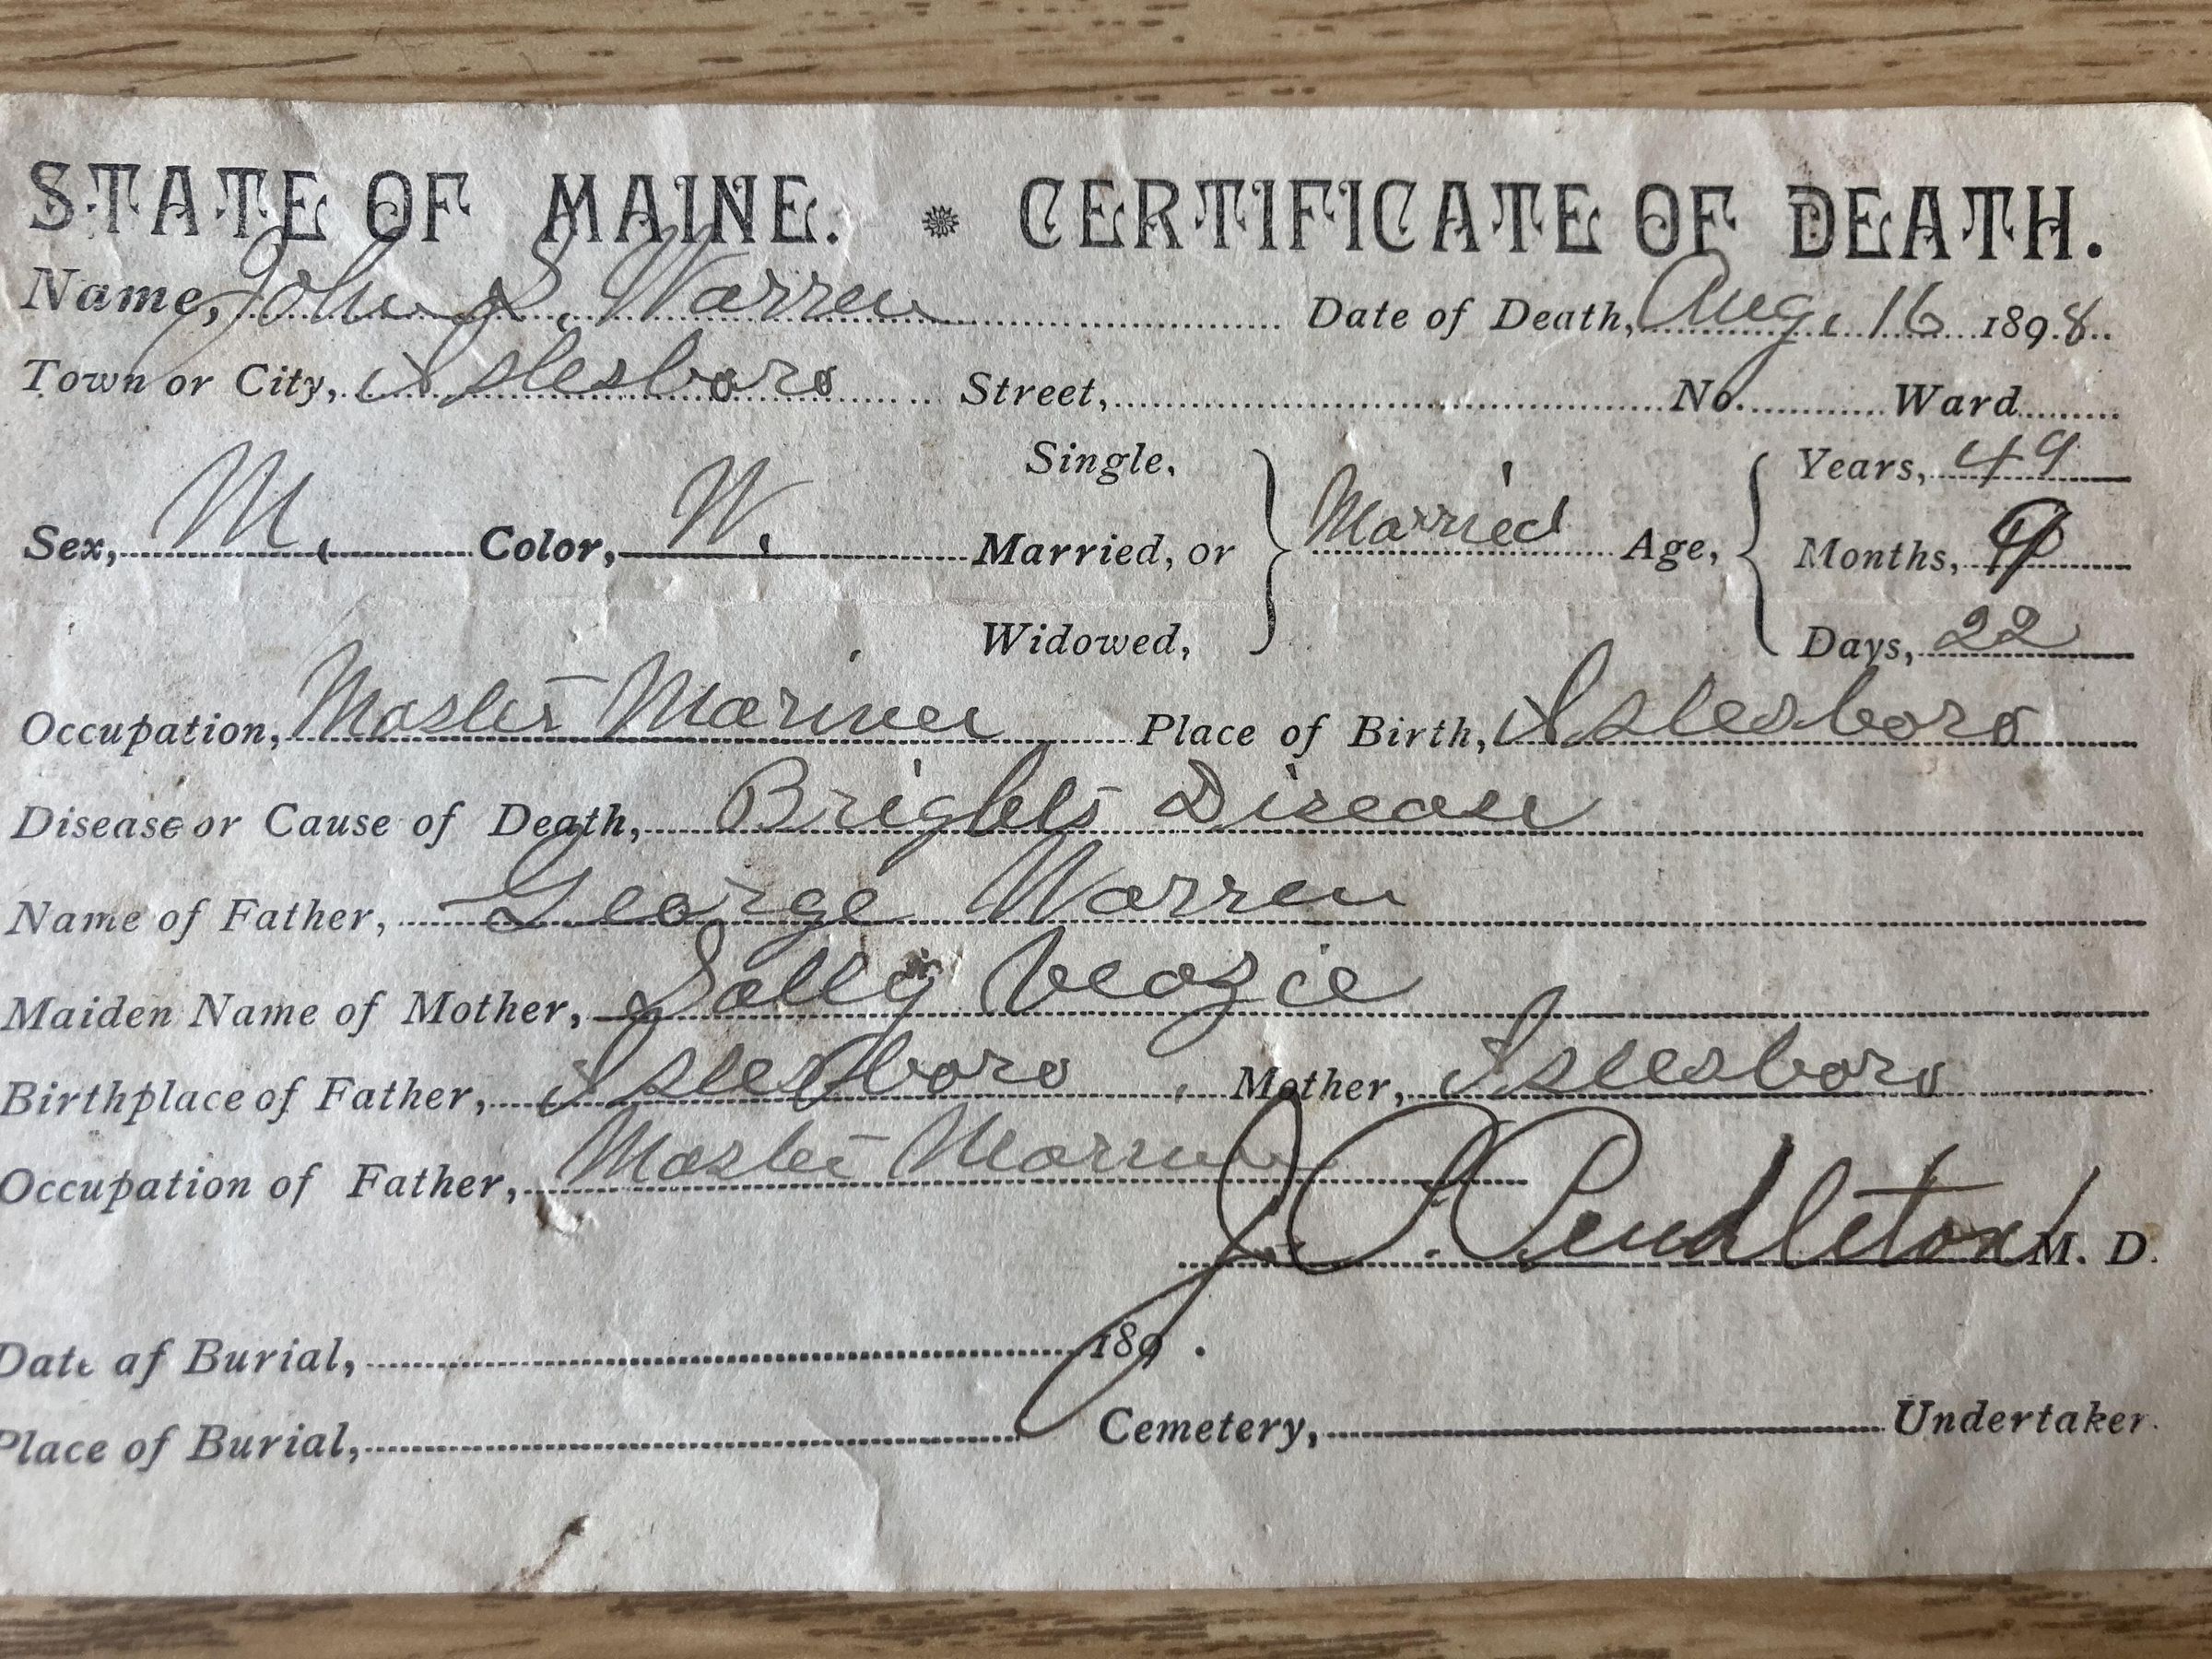 STATE OF MAINE. CERTIFICATE OF DEATH.
Name, John S. Warren Date of Death, Aug. 16 1898.
Town or City, Islesboro Street, No. Ward
Single,
Years, 49
Sex, M. Color, W. Married, or Married Age, Months,
Widowed, Days, 22
Occupation, Master Mariner Place of Birth, Islesboro
Disease or Cause of Death, Brights Disease
Name of Father, George Warren
Maiden Name of Mother, Sally Veazie
Birthplace of Father, Islesboro Mother, Islesboro
Occupation of Father, Master Mariner
Pendleton M. D.
Date af Burial, 189 .
Place of Burial, Cemetery, Undertaker.